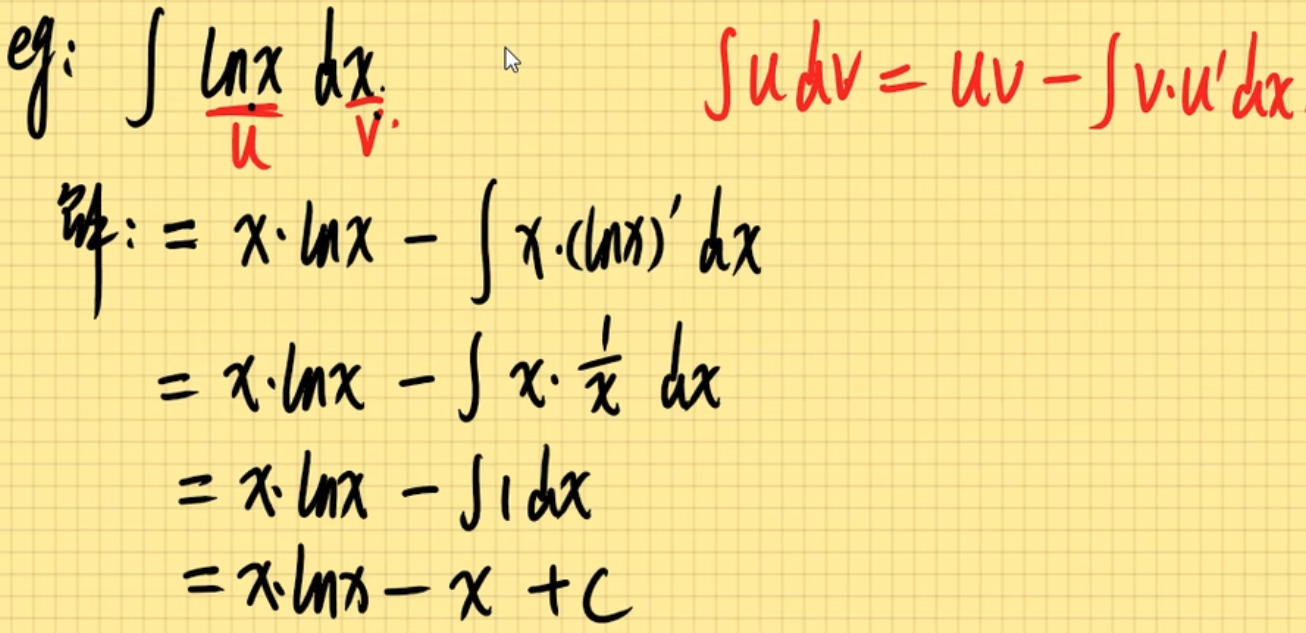 eg: ∫ lnx dx. ∫udv = uv − ∫v·u'dx
u v.
解: = x·lnx − ∫ x·(lnx)' dx
= x·lnx − ∫ x· 1/x dx
= x·lnx − ∫1dx
= x·lnx − x + C